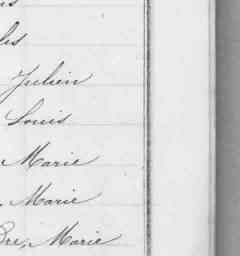 Julien
Louis
Marie
Marie
Marie